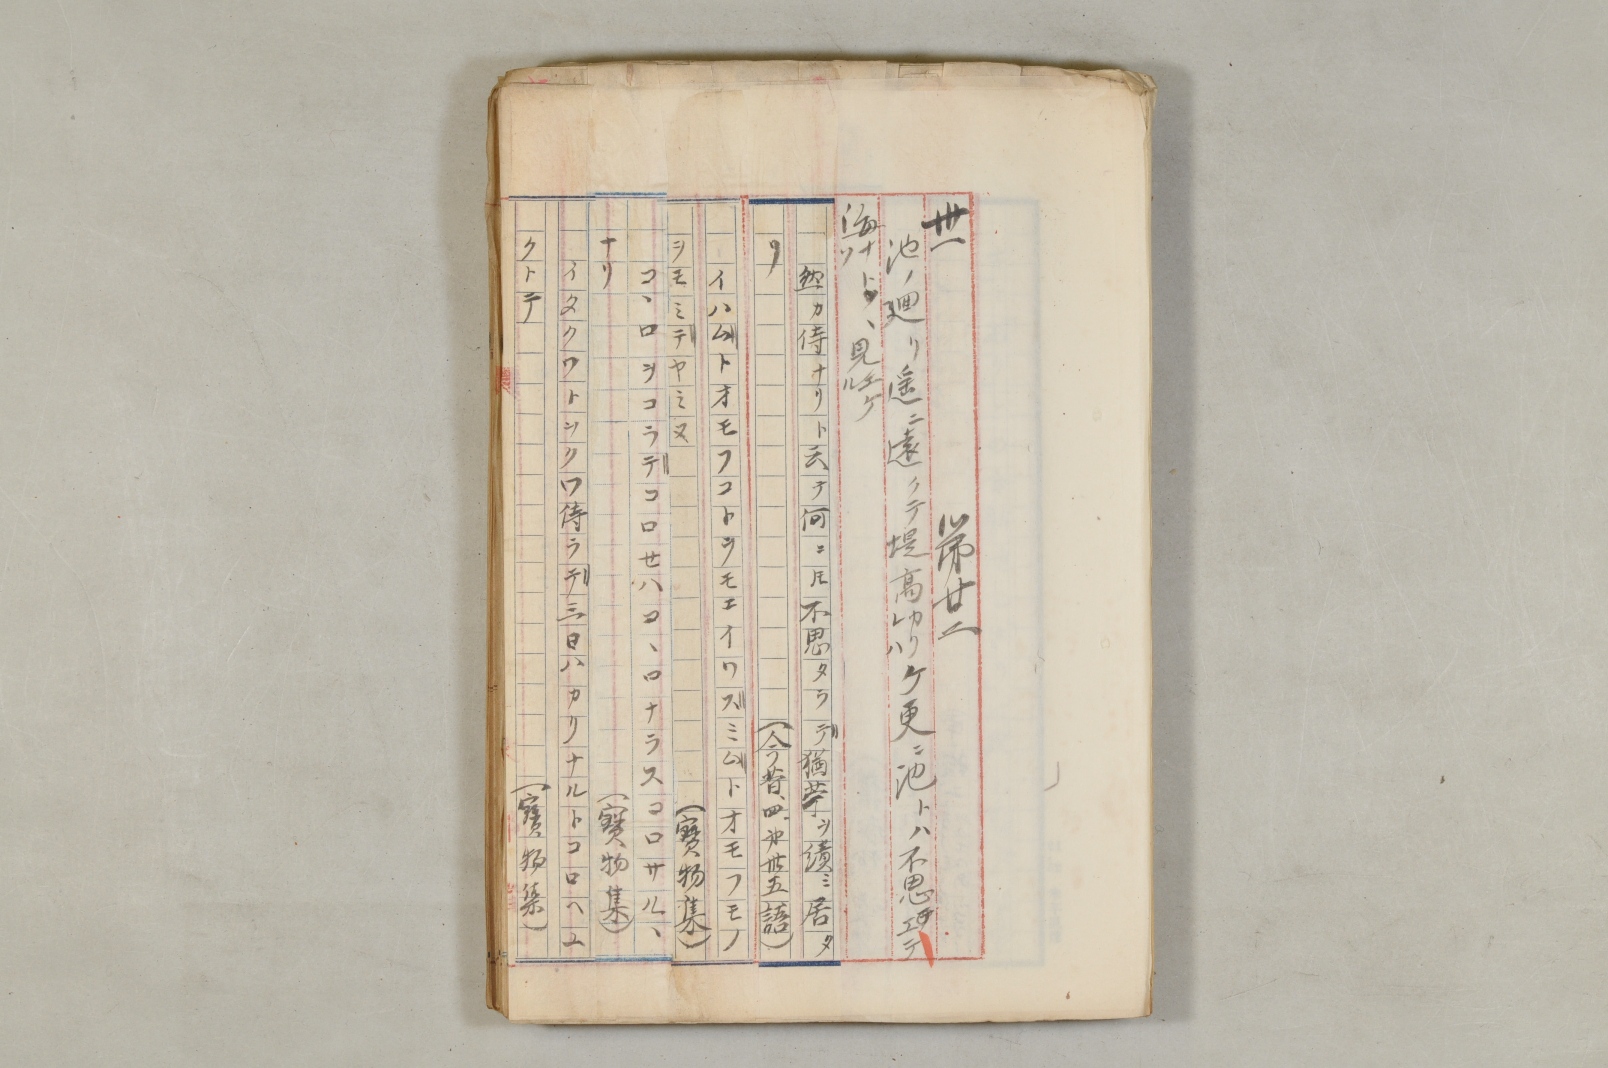 卅一　　第廿二
池ノ廻リ遥ニ遠クテ堤高カリケレハ更ニ池トハ不思エテ
海ナトノ、見エケル
然カ侍ナリト云テ何ニ圧不思タラデ猶苧ヲ績ミ居タ
リ　（今昔、四、廿五語）
イハムトオモフコトヲモエイワズミムトオモフモノ
ヲモミデヤミヌ　（寶物集）
コ、ロヲコラデコロセハコ、ロナラスコロサル、
ナリ　（寶物集）
イタクワトヲクワ侍ラデ三日ハカリナルトコロヘユ
クトテ　（寶物集）